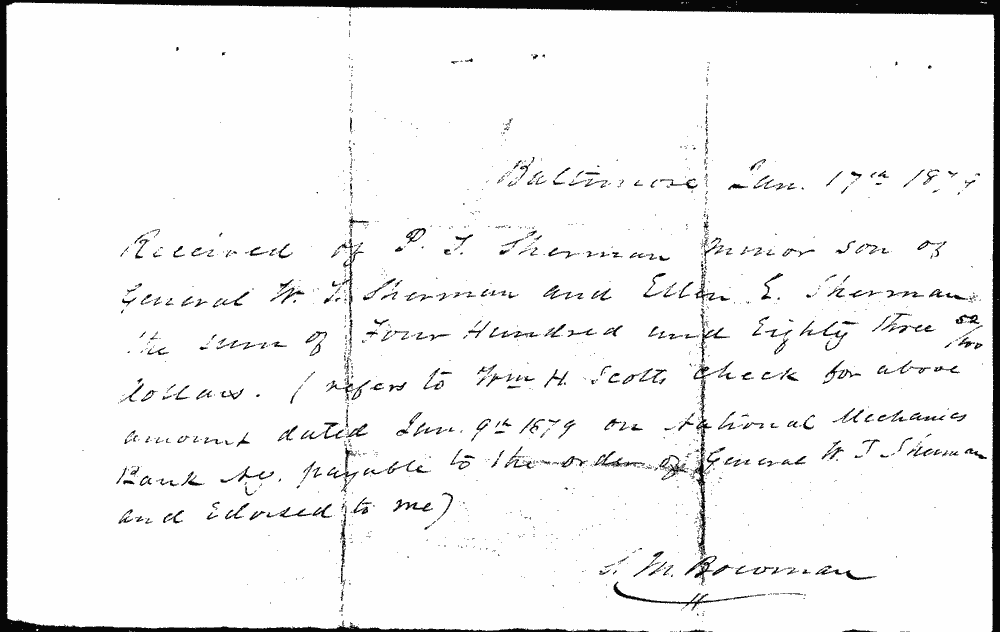 Baltimore Jan. 17th 1879
Received of P. T. Sherman minor son of
General W. T. Sherman and Ellen E. Sherman
the sum of Four Hundred and Eighty three 52/100
dollars. (refers to Wm H. Scotts check for above
amount dated Jan. 9th 1879 on National Mechanics
Bank payable to the order of General W. T Sherman
and Edorsed to me)
S. M. Bowman